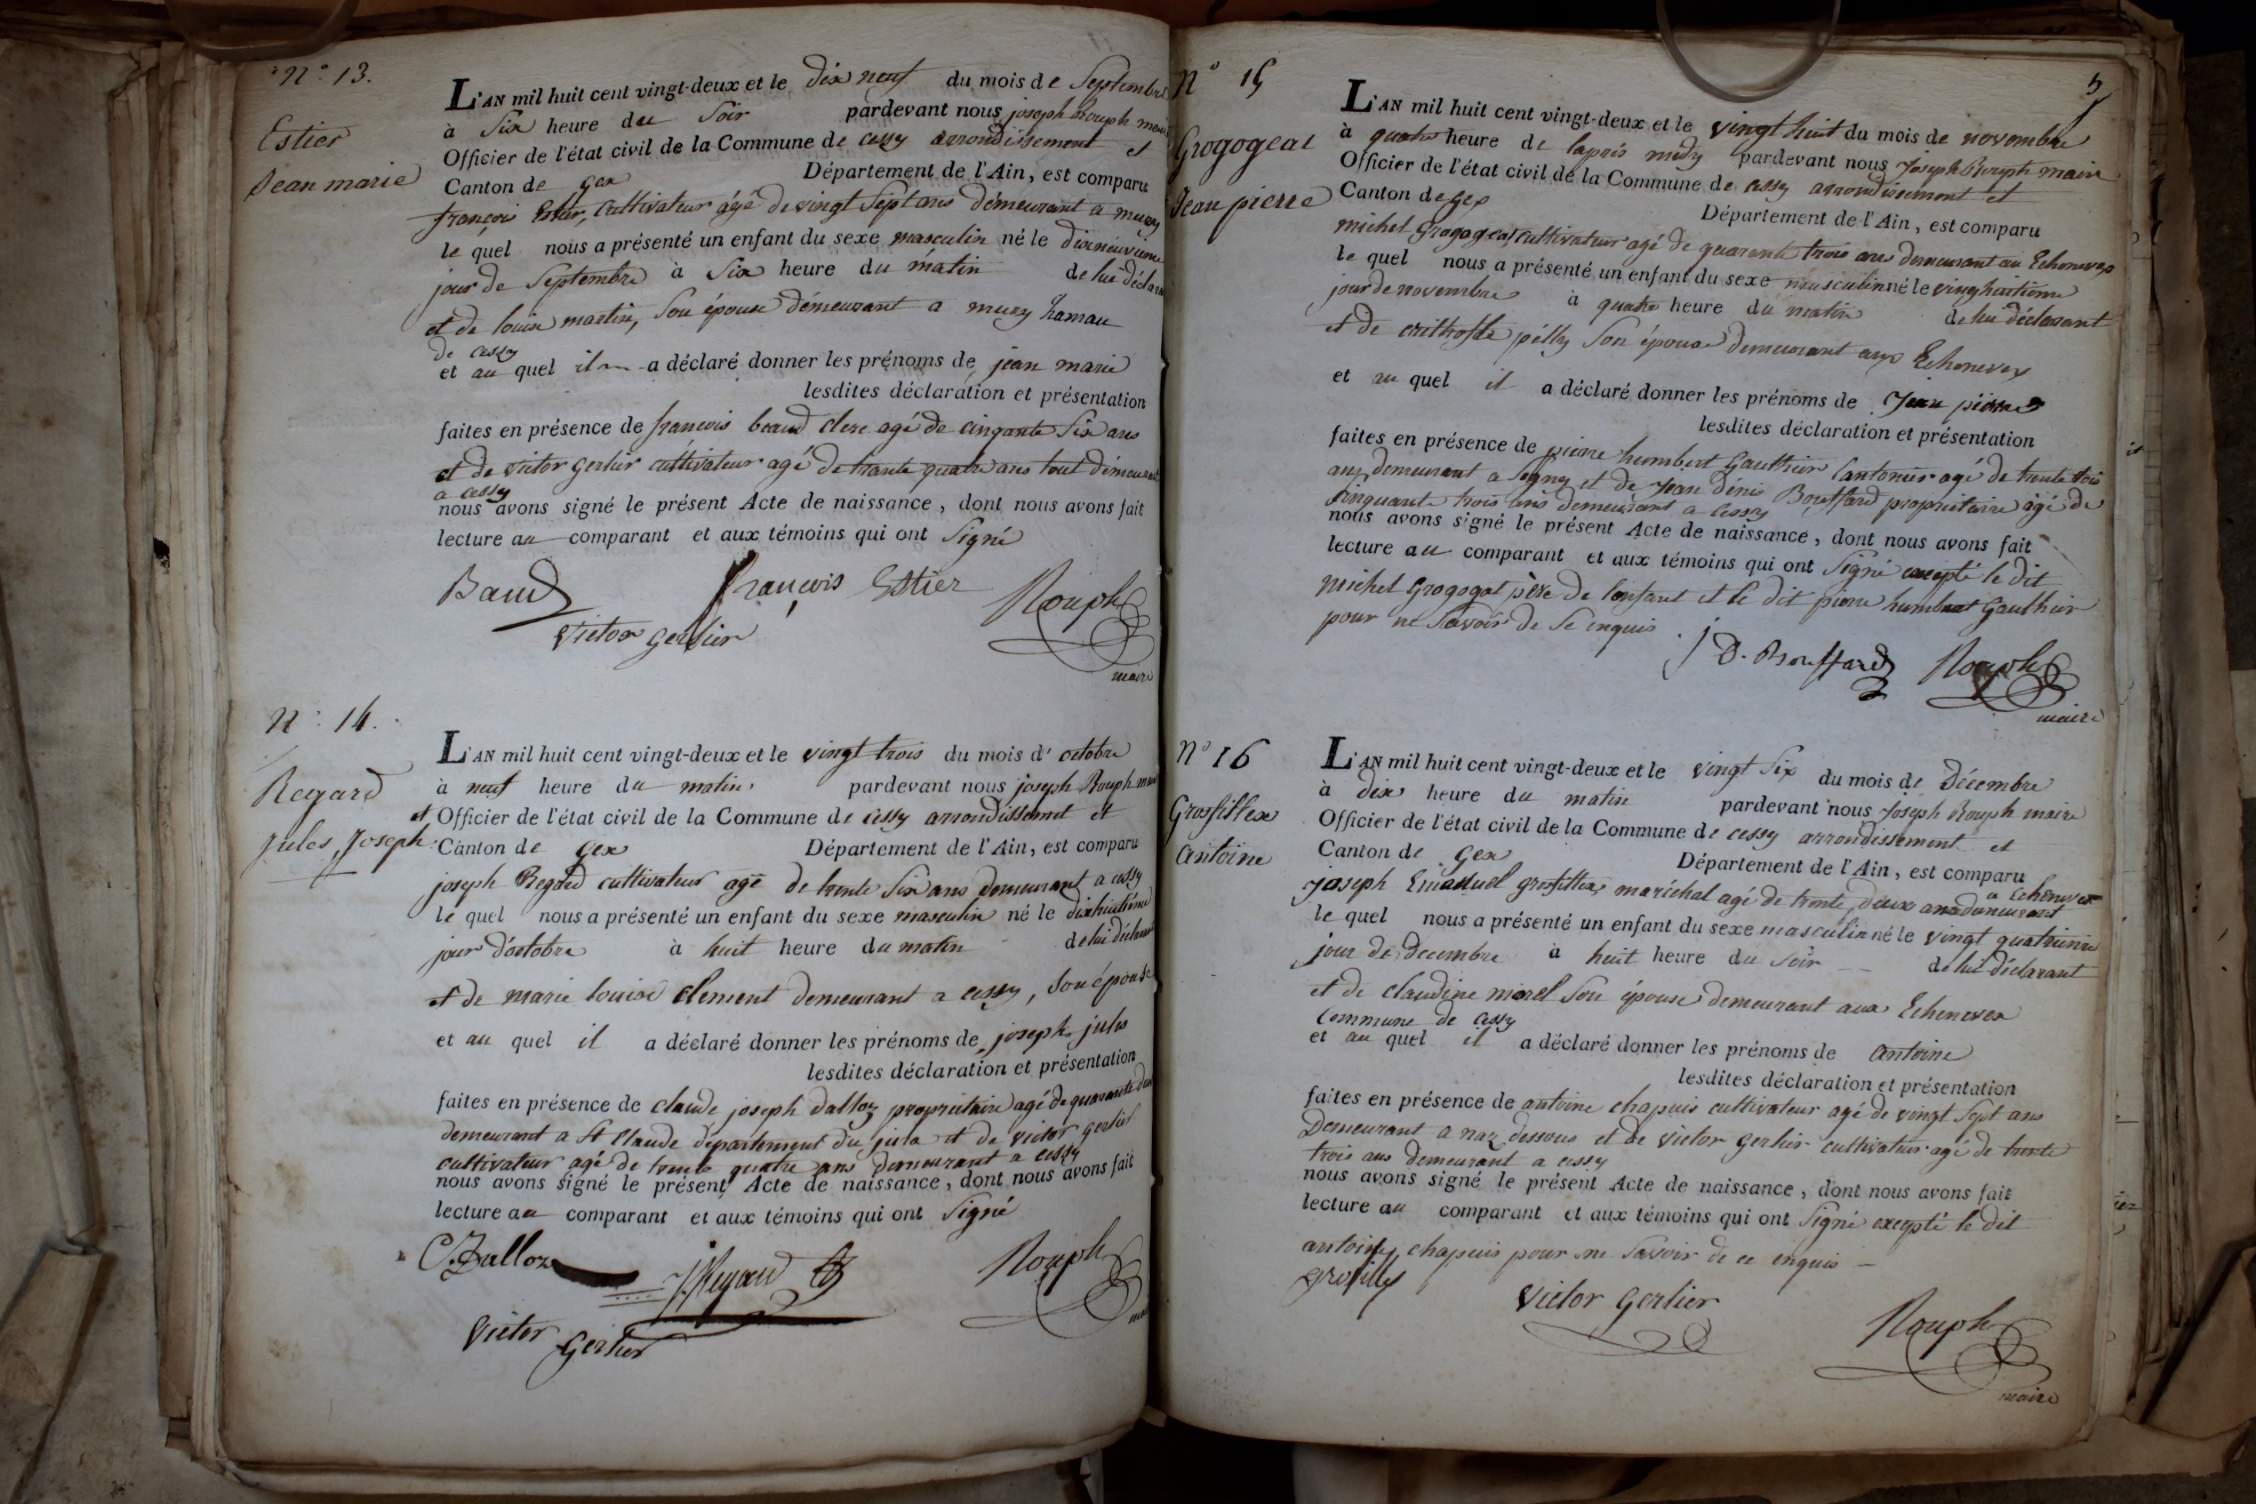 N° 13.
Estier
Jean marie
L'AN mil huit cent vingt-deux et le dix neuf du mois de Septembre
à Six heure du Soir pardevant nous joseph Rouph maire
Officier de l'état civil de la Commune de cessy arrondissement et
Canton de gex Département de l'Ain, est comparu
françois Estier, Cultivateur âgé de vingt Sept ans démeurant a murzy
le quel nous a présenté un enfant du sexe masculin né le dixneuvieme
jour de Septembre à Six heure du matin de lui déclarant
et de louise martin, Son épouse démeurant a murzy hamau
de cessy
et au quel il a déclaré donner les prénoms de jean marie
lesdites déclaration et présentation
faites en présence de françois beaud clerc agé de cinqante Six ans
et de victor gerlier cultivateur agé de trante quatre ans tout démeurant
a cessy
nous avons signé le présent Acte de naissance, dont nous avons fait
lecture au comparant et aux témoins qui ont Signé
Baud françois Estier Rouph
victor gerlier
maire
N° 14.
Regard
et
jules, Joseph
L'AN mil huit cent vingt-deux et le vingt trois du mois d' octobre
à neuf heure du matin pardevant nous joseph Rouph maire
Officier de l'état civil de la Commune de cessy arrondissement et
Canton de gex Département de l'Ain, est comparu
joseph Regard cultivateur agé de trente Six ans demeurant a cessy
le quel nous a présenté un enfant du sexe masculin né le dixhuitième
jour d'octobre à huit heure du matin de lui déclarant
et de marie louise clement demeurant a cessy, Son épouse
et au quel il a déclaré donner les prénoms de joseph jules
lesdites déclaration et présentation
faites en présence de claude joseph dalloz propriétaire agé de quarante deux
demeurant a St Claude département du jura et de victor gerlier
cultivateur agé de trente quatre ans demeurant a cessy
nous avons signé le présent Acte de naissance, dont nous avons fait
lecture au comparant et aux témoins qui ont Signé
C. Dalloz J. Regard Rouph
Victor Gerlier
N° 15
Grogogeat
Jean pierre
5
L'AN mil huit cent vingt-deux et le vingt huit du mois de novembre
à quatre heure de laprès midy pardevant nous Joseph Rouph maire
Officier de l'état civil de la Commune de cessy arrondissement et
Canton de gex Département de l'Ain, est comparu
michel Grogogeat cultivateur agé de quarante trois ans demeurant au Echenevex
le quel nous a présenté un enfant du sexe masculin né le vingthuitieme
jour de novembre à quatre heure du matin de lui déclarant
et de pélly Son épouse demeurant aux Echenevex
et au quel il a déclaré donner les prénoms de Jean pierre
lesdites déclaration et présentation
faites en présence de pierre humbert Gauthier Cantonier agé de trente trois
ans demeurant a Segny et de Jean dénis Bouffard propriétaire âgé de
Sinquante trois ans demeurant a cessy
nous avons signé le présent Acte de naissance, dont nous avons fait
lecture au comparant et aux témoins qui ont Signé excepté le dit
michel Grogogat père de lenfant et le dit pierre humbert Gauthier
pour ne Savoir de Se enquis.
j D. Bouffard Rouph
maire
N° 16
Grosfillex
antoine
L'AN mil huit cent vingt-deux et le vingt Six du mois de décembre
à dix heure du matin pardevant nous Joseph Rouph maire
Officier de l'état civil de la Commune de cessy arrondissement et
Canton de gex Département de l'Ain, est comparu
joseph Emanuel grosfillex maréchal agé de trente deux ans demeurant a Echenevex
le quel nous a présenté un enfant du sexe masculin né le vingt quatrieme
jour de decembre à huit heure du Soir de lui déclarant
et de claudine morel Son épouse demeurant aux Echenevex
Commune de Cessy
et au quel il a déclaré donner les prénoms de antoine
lesdites déclaration et présentation
faites en présence de antoine chapuis cultivateur agé de vingt Sept ans
Demeurant a naz dessous et de victor gerlier cultivateur agé de trente
trois ans demeurant a cessy
nous avons signé le présent Acte de naissance, dont nous avons fait
lecture au comparant et aux témoins qui ont Signé excepté le dit
antoine chapuis pour ne Savoir de ce enquis
victor gerlier Rouph
maire